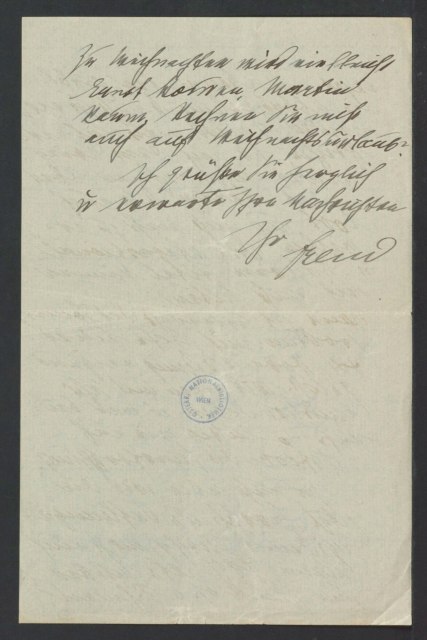 Zu Weihnachten wird vielleicht
Ernst kommen, Martin
kaum. Rechnen Sie nicht
auch auf Weihnachtsurlaub?
Ich grüße Sie herzlich
u erwarte Ihre Nachrichten
Ihr Freud
ÖSTERR. NATIONALBIBLIOTHEK
WIEN